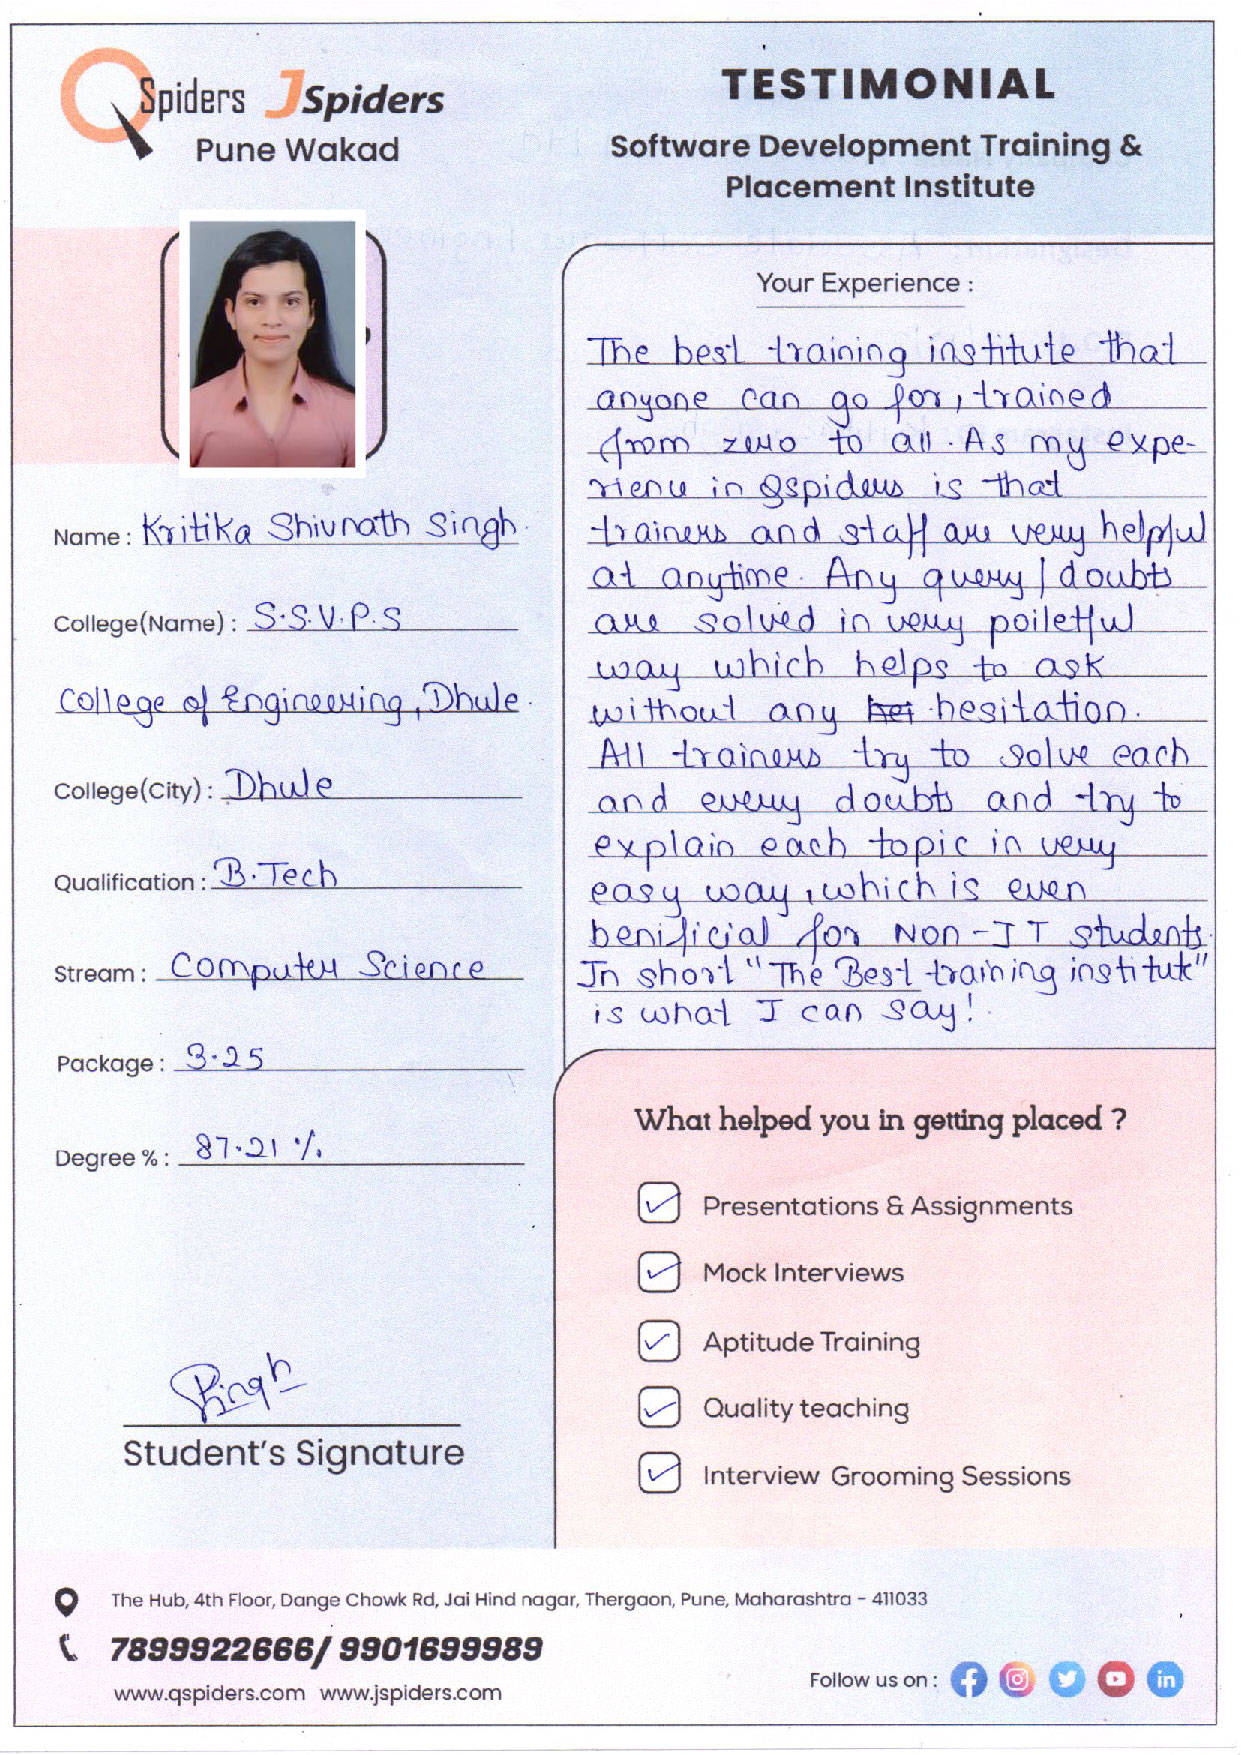 QSpiders JSpiders
Pune Wakad
TESTIMONIAL
Software Development Training &
Placement Institute
Name : Kritika Shivnath Singh.
College(Name) : S.S.V.P.S
College of Engineering, Dhule.
College(City) : Dhule
Qualification : B.Tech
Stream : Computer Science
Package : 3.25
Degree % : 87.21 %
Singh
Student's Signature
Your Experience :
The best training institute that
anyone can go for, trained
from zero to all. As my expe-
rience in Qspiders is that
trainers and staff are very helpful
at anytime. Any query/doubts
are solved in very poiletful
way which helps to ask
without any hei hesitation.
All trainers try to solve each
and every doubts and try to
explain each topic in very
easy way, which is even
benificial for NON-IT students.
In short "The Best training institute"
is what I can say!.
What helped you in getting placed ?
Presentations & Assignments
Mock Interviews
Aptitude Training
Quality teaching
Interview Grooming Sessions
The Hub, 4th Floor, Dange Chowk Rd, Jai Hind nagar, Thergaon, Pune, Maharashtra - 411033
7899922666/ 9901699989
www.qspiders.com www.jspiders.com
Follow us on :